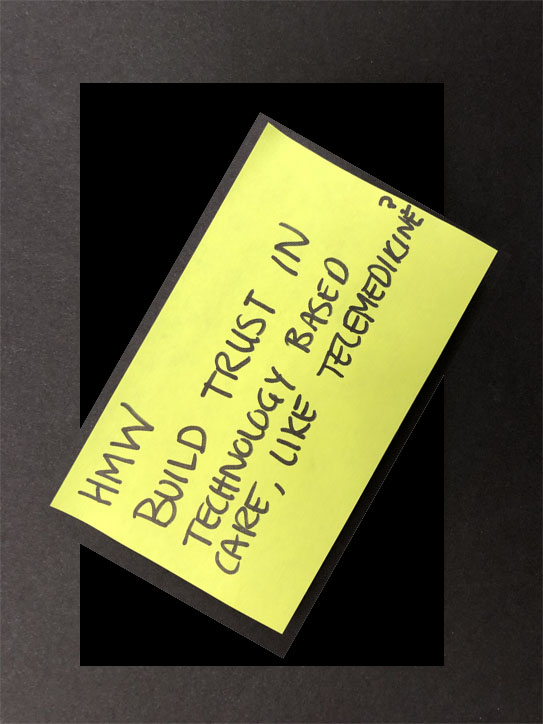 HMW
BUILD TRUST IN
TECHNOLOGY BASED
CARE, LIKE TELEMEDICINE?